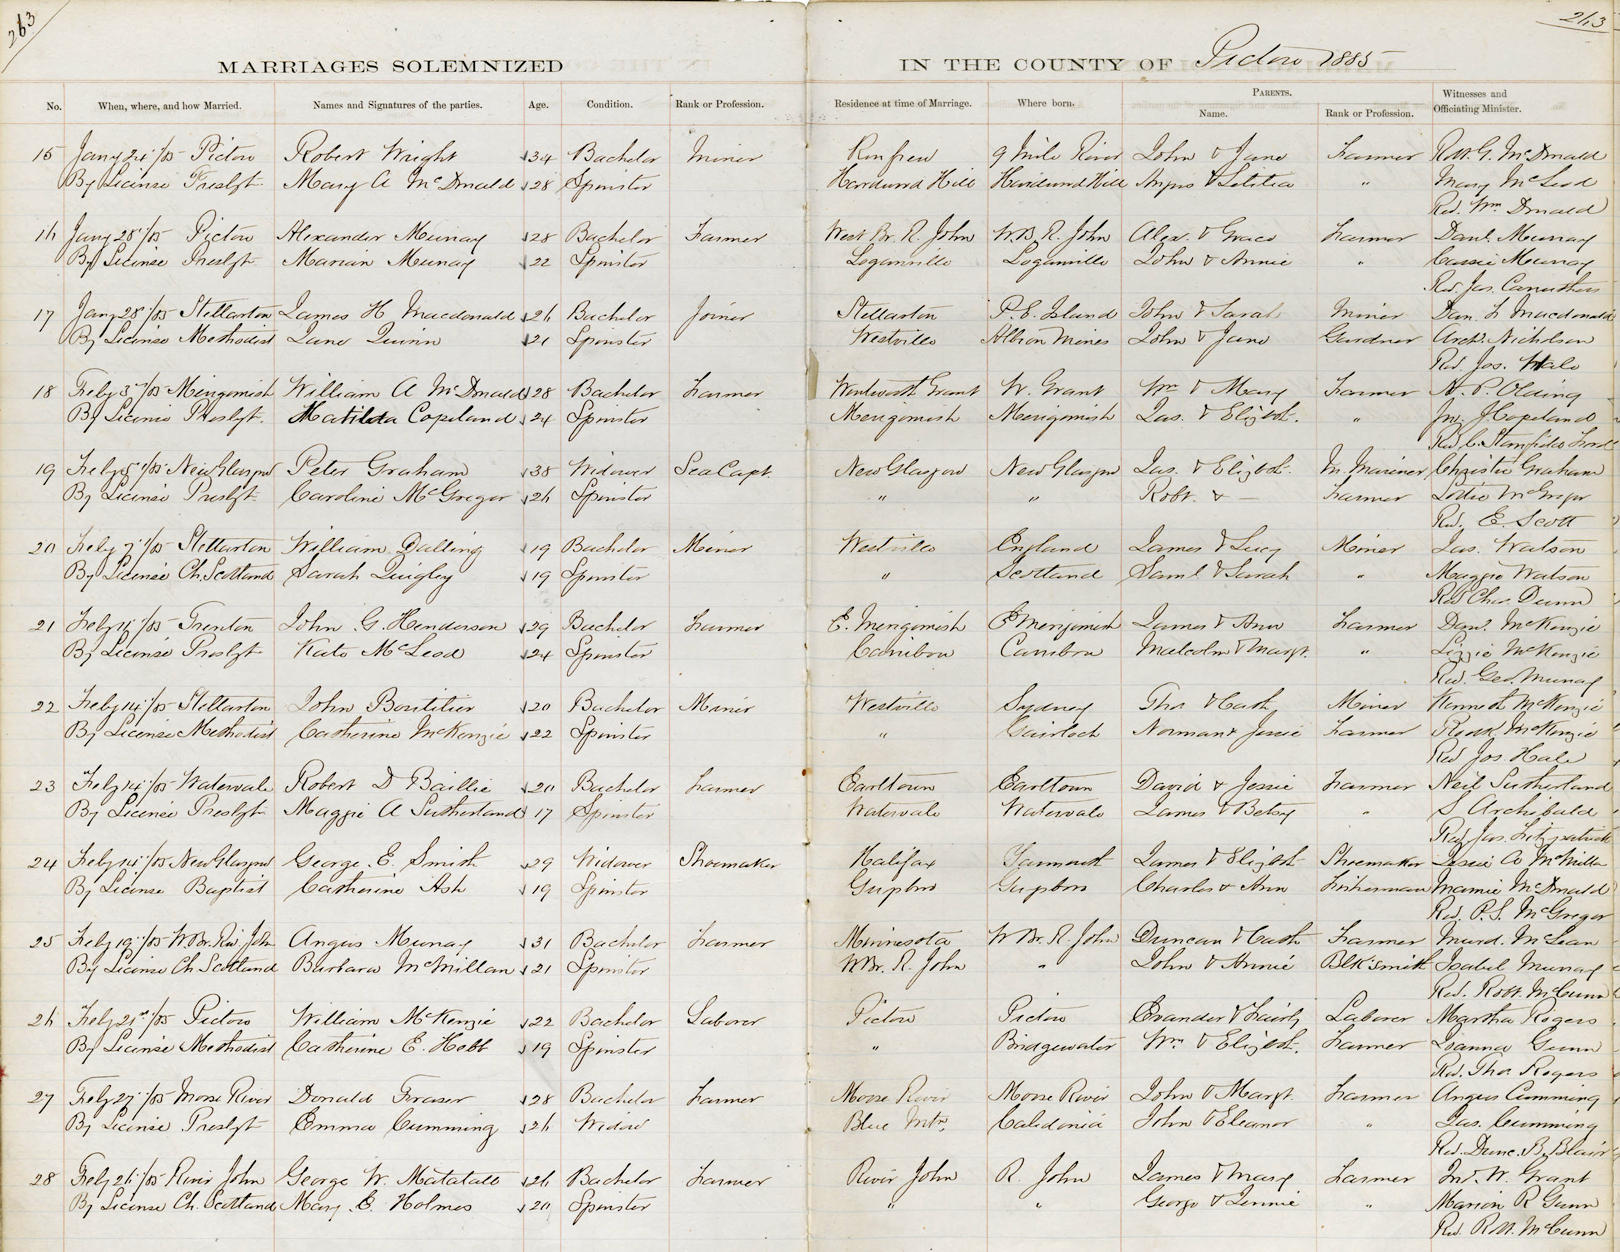 263
263
MARRIAGES SOLEMNIZED IN THE COUNTY OF Pictou 1885
No. When, where, and how Married. Names and Signatures of the parties. Age. Condition. Rank or Profession. Residence at time of Marriage. Where born. PARENTS. Name. Rank or Profession. Witnesses and Officiating Minister.
15 Jany 24th/85 Pictou Robert Wright 34 Bachelor Miner Renfrew 9 Mile River John & Jane Farmer Robt. G. McDonald
By License Presbyt. Mary A McDonald 28 Spinster Hardwood Hill Hardwood Hill Angus & Letitia " Mary McLeod
Rev. Wm Donald
16 Jany 28th/85 Pictou Alexander Murray 28 Bachelor Farmer West Br. R. John W.B. R. John Alex. & Grace Farmer Danl. Murray
By License Presbyt Marian Murray 22 Spinster Loganville Loganville John & Annie " Cassie Murray
Rev. Jas. Carruthers
17 Jany 28th/85 Stellarton James H Macdonald 26 Bachelor Joiner Stellarton P.E. Island John & Sarah Miner Dan. L Macdonald
By License Methodist Jane Quinn 21 Spinster Westville Albion Mines John & Jane Gardner Archd. Nicholson
Rev. Jos. Hale
18 Feby 3rd/85 Merigomish William A McDonald 28 Bachelor Farmer Wentworth Grant W. Grant Wm & Mary Farmer A. P. Olding
By License Presbyt. Matilda Copeland 24 Spinster Merigomish Merigomish Jas. & Elizbth. " Jno. J Copeland
Rev. C. Stanfield Lord
19 Feby 5th/85 New Glasgow Peter Graham 38 Widower Sea Capt. New Glasgow New Glasgow Jas. & Elizbth. M. Mariner Christie Graham
By License Presbyt Caroline McGregor 26 Spinster " " Robt. & — Farmer Lottie McGregor
Rev. E. Scott
20 Feby 7th/85 Stellarton William Dalling 19 Bachelor Miner Westville England James & Lucy Miner Jas. Watson
By License Ch. Scotland Sarah Quigley 19 Spinster " Scotland Saml & Sarah " Maggie Watson
Rev Chas. Dunn
21 Feby 11th/85 Trenton John G. Henderson 29 Bachelor Farmer E. Merigomish E Merigomish James & Ann Farmer Danl. McKenzie
By License Presbyt Kate McLeod 24 Spinster Caribou Caribou Malcolm & Margt. " Lizzie McKenzie
Rev. Geo. Murray
22 Feby 14th/85 Stellarton John Boutilier 20 Bachelor Miner Westville Sydney Thos & Cath Miner Kenneth McKenzie
By License Methodist Catherine McKenzie 22 Spinster " Gairloch Norman & Jessie Farmer McKenzie
Rev Jos. Hale
23 Feby 14th/85 Watervale Robert D Baillie 20 Bachelor Farmer Earltown Earltown David & Jessie Farmer Neil Sutherland
By License Presbyt Maggie A Sutherland 17 Spinster Watervale Watervale James & Betsy " S Archibald
Rev. Jas. Fitzpatrick
24 Feby 14th/85 New Glasgow George E. Smith 29 Widower Shoemaker Halifax Yarmouth James & Elizbth Shoemaker Jessie A McMillan
By License Baptist Catherine Ash 19 Spinster Gusboro Gusboro Charles & Ann Fisherman Mamie McDonald
Rev. P.S. McGregor
25 Feby 19th/85 W Br. Riv. John Angus Murray 31 Bachelor Farmer Minnesota W Br. R. John Duncan & Cath Farmer Murd. McLean
By License Ch Scotland Barbara McMillan 21 Spinster W Br. R. John " John & Annie Blksmith Isabel Murray
Rev. Robt. McCunn
26 Feby 21st/85 Pictou William McKenzie 22 Bachelor Laborer Pictou Pictou Evander & Fairly Laborer Martha Rogers
By License Methodist Catherine E. Hebb 19 Spinster " Bridgewater Wm & Elizbth. Farmer Joanna Gunn
Rev. Thos Rogers
27 Feby 27th/85 Moose River Donald Fraser 28 Bachelor Farmer Moose River Moose River John & Margt. Farmer Angus Cumming
By License Presbyt Emma Cumming 26 Widow Blue Mtn. Caledonia John & Eleanor " Jas. Cumming
Rev. Dunc. B. Blair
28 Feby 26th/85 River John George W. Matatall 26 Bachelor Farmer River John R. John James & Mary Farmer Jno. W. Grant
By License Ch. Scotland Mary E Holmes 20 Spinster " " George & Jennie " Marion R Gunn
Rev. Robt. McCunn